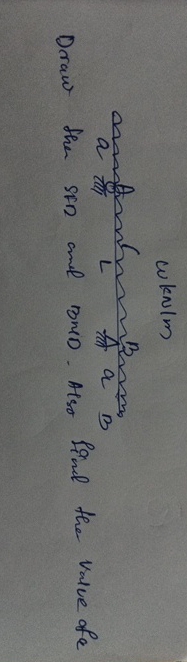 w kN/m
A B
a L a B
Draw the SFD and BMD. Also find the value of a